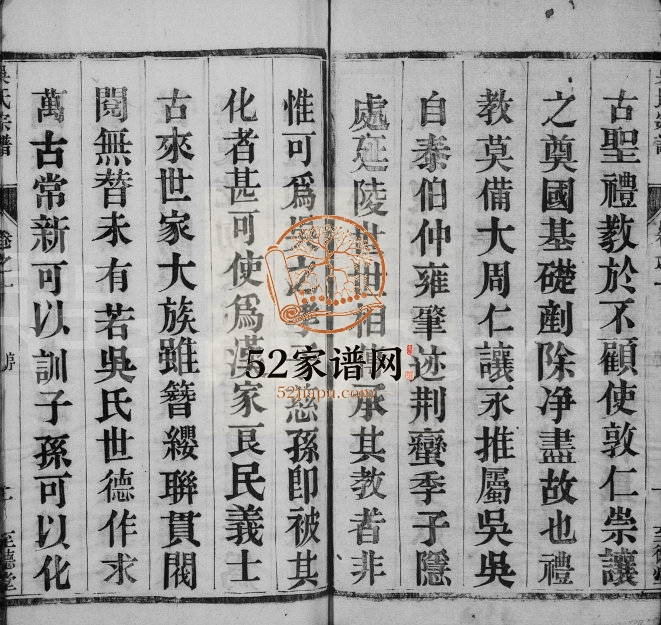 古聖禮教於不顧使敦仁崇讓
之奠國基礎剷除净盡故也禮
教莫備大周仁讓永推屬吳吳
自泰伯仲雍肇迹荆蠻季子隱
處延陵世世相承其教者非
惟可為吳之孝慈孫即被其
化者甚可使為漢家良民義士
古來世家大族雖簪纓聯貫閥
閱無替未有若吳氏世德作求
萬古常新可以訓子孫可以化
吳氏宗譜
至德堂
52家谱网
52jiapu.com